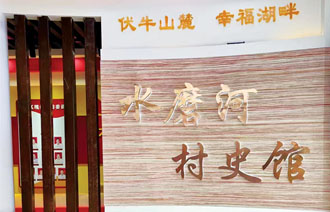 伏牛山麓 幸福湖畔
水磨河
村史馆